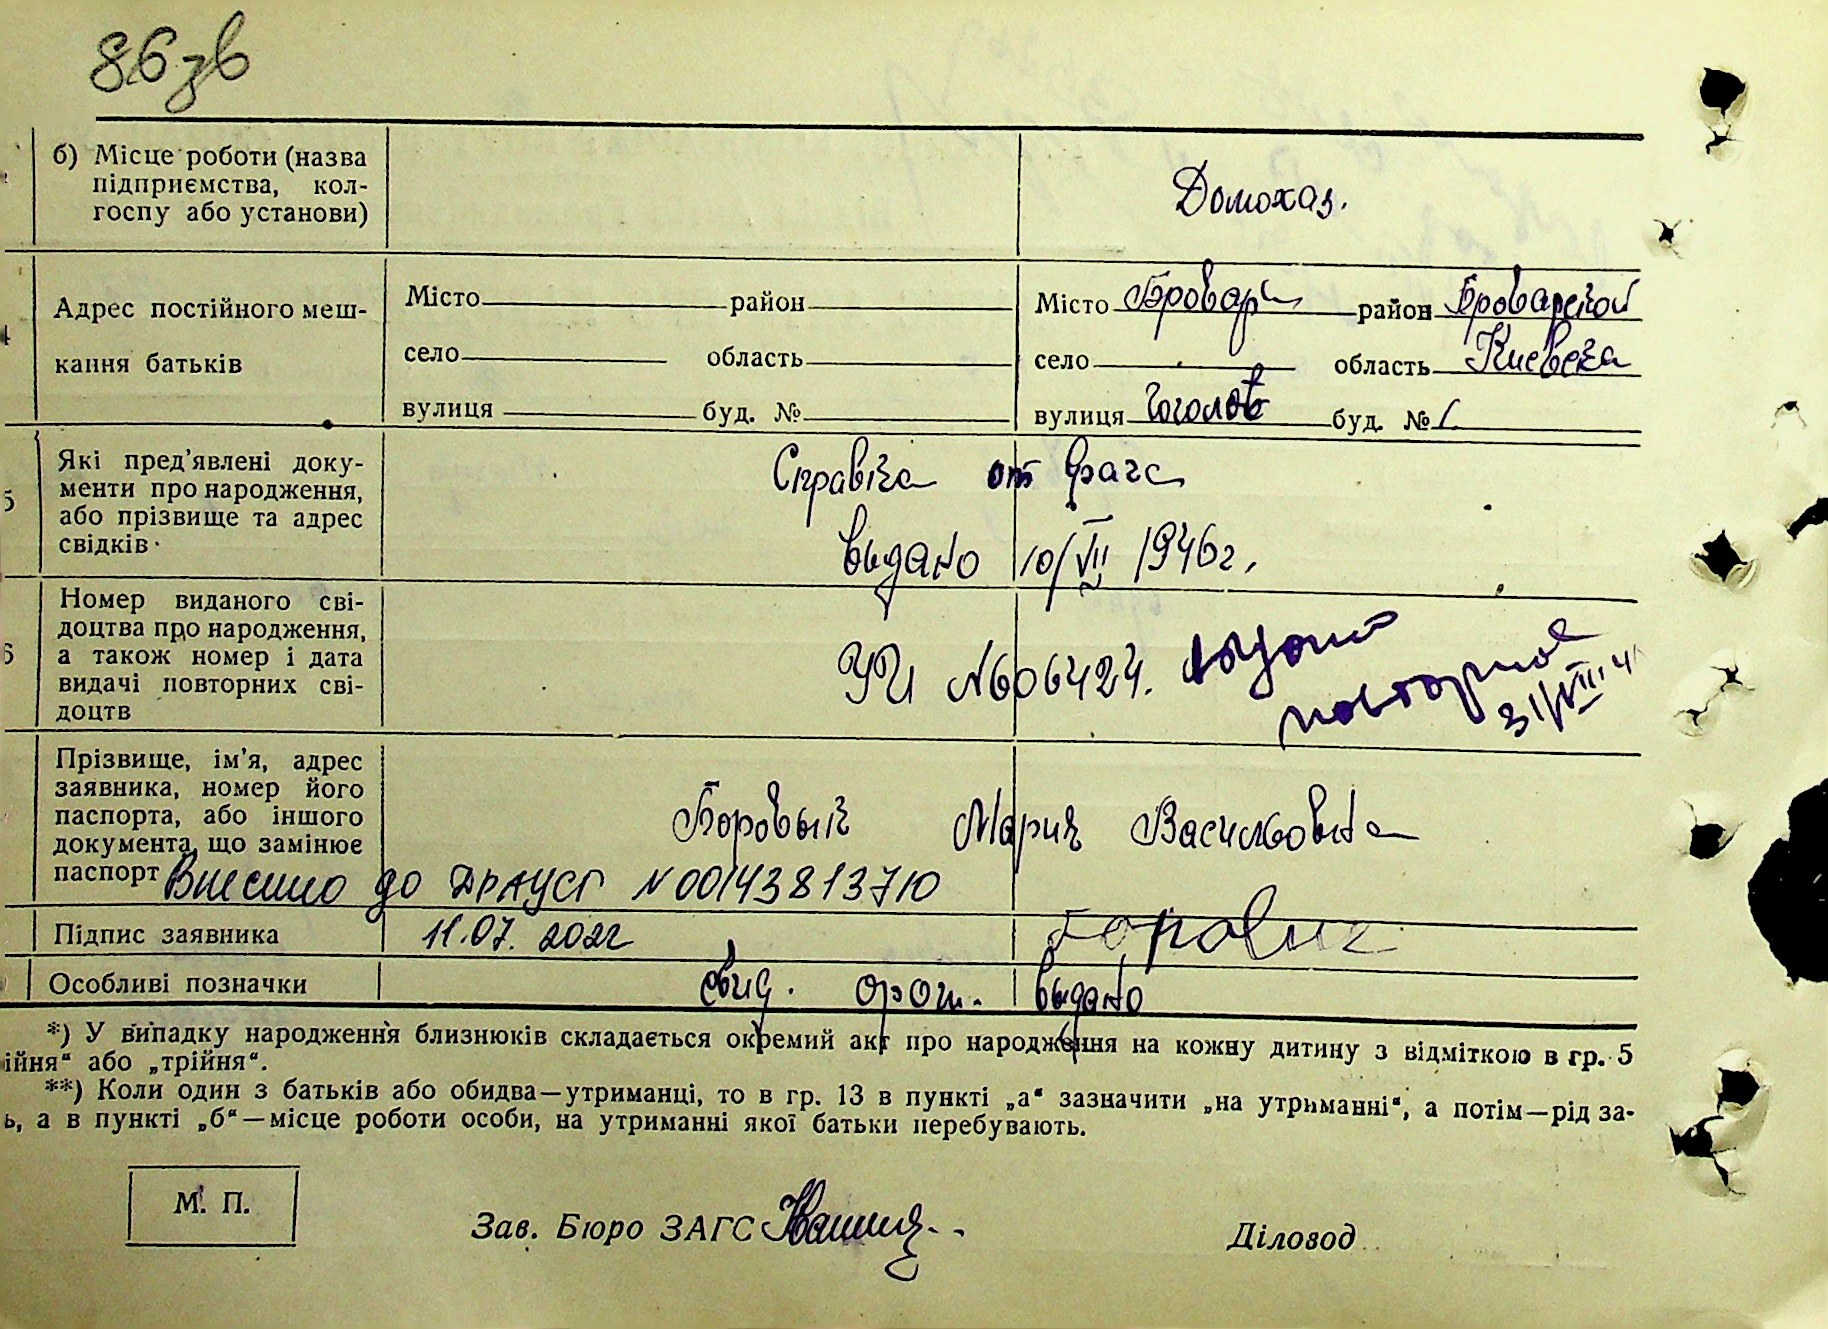 86 зв
б) Місце роботи (назва
підприємства, кол-
госпу або установи)
Домохаз.
Адрес постійного меш-
кання батьків
Місто район
село область
вулиця буд. №
Місто Бровары район Броварской
село область Киевска
вулиця Гоголов буд. № 1
5
Які пред'явлені доку-
менти про народження,
або прізвище та адрес
свідків
Справка от врача
выдано 10/VII 1946 г.
6
Номер виданого сві-
доцтва про народження,
а також номер і дата
видачі повторних сві-
доцтв
№ 606424. выдано
повторное
31/VIII 4
Прізвище, ім'я, адрес
заявника, номер його
паспорта, або іншого
документа, що замінює
паспорт
Боровык Мария Васильовна
Внесено до ДРАЦСГ N 00143813710
Підпис заявника
11.07. 2022
Боровик
Особливі позначки
свид. орош. выдано
*) У випадку народження близнюків складається окремий акт про народження на кожну дитину з відміткою в гр. 5
ійня“ або „трійня“.
**) Коли один з батьків або обидва—утриманці, то в гр. 13 в пункті „а“ зазначити „на утриманні“, а потім—рід за-
ь, а в пункті „б“—місце роботи особи, на утриманні якої батьки перебувають.
М. П.
Зав. Бюро ЗАГС
Діловод